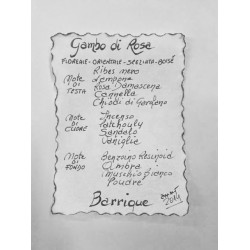 Gambo di Rosa
FIOREALE - ORIENTALE - SPEZIATO - BOISÉ
Ribes nero
NOTE DI TESTA
Lampone
Rosa Damascena
Cannella
Chiodi di Garofano
NOTE DI CUORE
Incenso
Patchouly
Sandalo
Vaniglia
NOTE DI FONDO
Benzoino Resinoid
Ambra
Muschio Bianco
Poudré
Barrique
2014